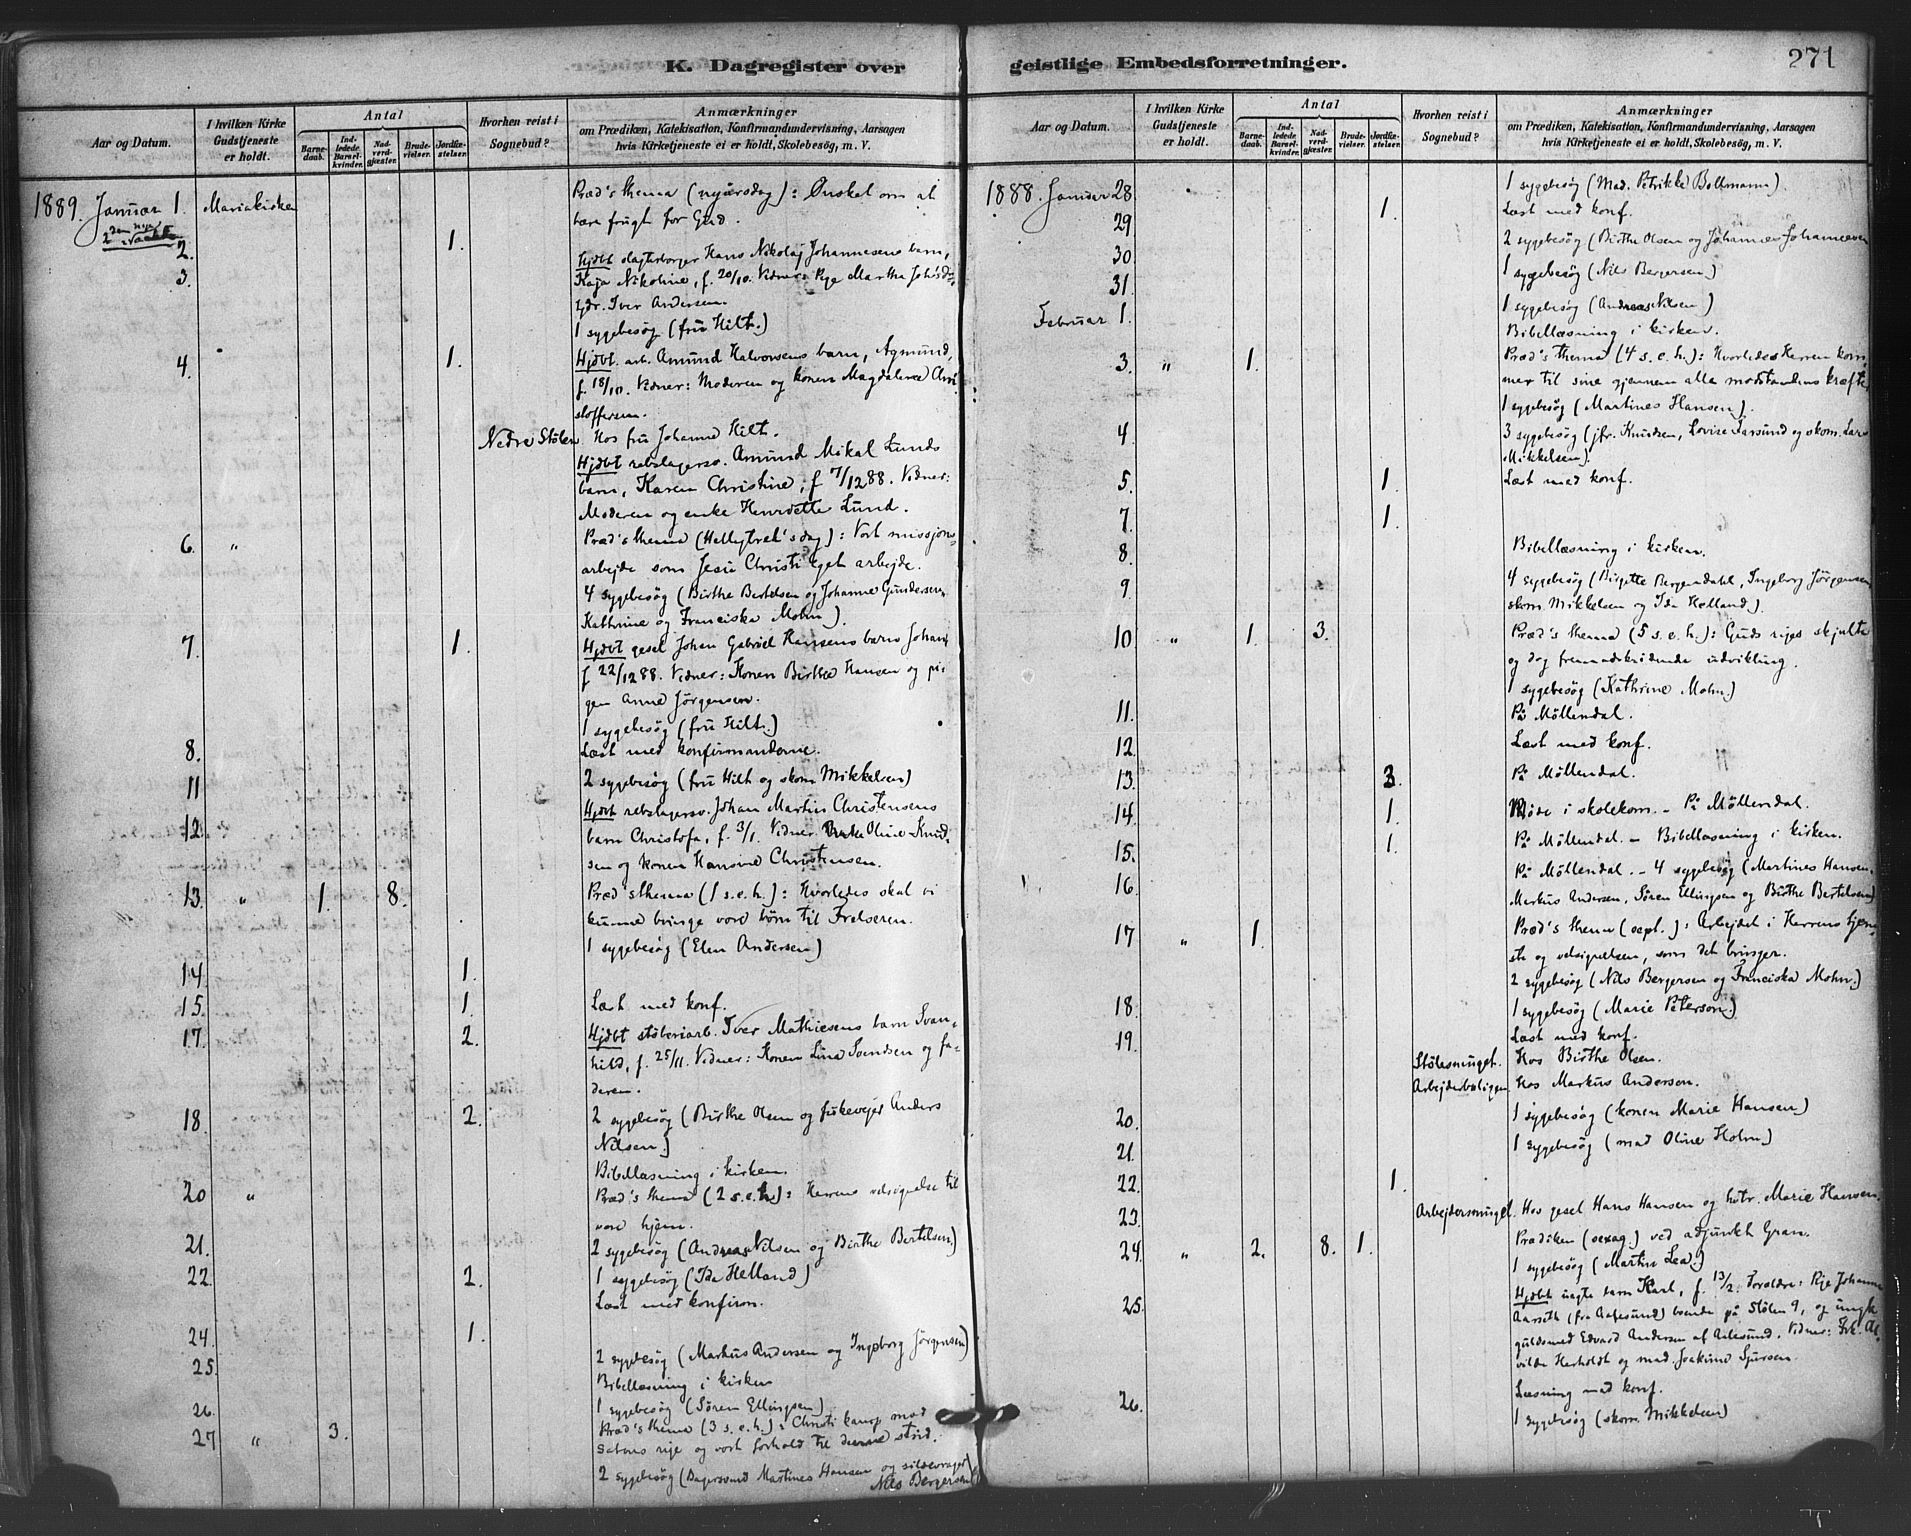 K. Dagregister over
Aar og Datum.
I hvilken Kirke Gudstjeneste er holdt.
Antal
Barnedaab.
Indledede Barselkvinder.
Nadverdgjæster.
Brudevielser.
Jordfæstelser.
Hvorhen reist i Sognebud?
Anmærkninger
om Prædiken, Katekisation, Konfirmandundervisning, Aarsagen
hvis Kirketjeneste ei er holdt, Skolebesög, m. V.
1889. Januar 1. Mariakirken Præd's thema (nyårsdag): Ønsket om at
bære frugt for Gud.
2. 1. Hjdbt slagterborger Hans Nikolaj Johannesens barn,
3. Kaja Nikoline, f. 20/10. Vidner: Pige Martha
Iver Andersen.
1 sygebesøg (fru Hilt.)
4. 1. Hjdbt arb. Amund Halvorsens barn, Agmund,
f. 18/11. Vidner: Moderen og konen Magdalene Chri-
stoffersen.
Nedre Stölen. Hos fru Johanne Hilt.
Hjdbt rebslagersv. Amund Mikal Lunds
barn, Karen Christine, f 7/12 88. Vidner:
Moderen og enke Henriette Lund.
6. " Præd's thema (Helligtrek's dag): Vort missjons-
arbejde som Jesu Christi eget arbejde.
4 sygebesøg (Birthe Bertelsen og Johanne Gundersen,
Kathrine og Franciska Mohn).
7. 1. Hjdbt gesel Johan Gabriel Hansens barn Johan
f 22/12 88. Vidner: Konen Birthe Hansen og pi-
gen Anne Jörgensen.
1 sygebesøg (fru Hilt.)
8. Læst med konfirmanderne.
11 2 sygebesøg (fru Hilt og skom. Mikkelsen)
12. Hjdbt rebslagersv. Johan Martin Christensens
barn Christofa, f. 3/1. Vidner: Oline Knud-
sen og konen Hansine Christensen.
13. " 1. 8. Præd's thema (1 s.e.h.): Hvorledes skal vi
kunne bringe vore börn til Frelseren.
1 sygebesøg (Elen Andersen)
14. 1.
15. 1. Læst med konf.
17. 2. Hjdbt stöberiarb. Iver Mathiesens barn Svan-
hild, f. 25/11. Vidner: Konen Lina Svendsen og fa-
deren.
18. 2. 2 sygebesøg (Birthe Olsen og fiskevejer Anders
Nilsen)
Bibellæsning i kirken.
20 " Præd's thema (2 s.e.h): Herrens velsignelse til
vore hjem.
21. 2 sygebesøg (Andreas Nilsen og Birthe Bertelsen)
22. 2. 1 sygebesøg (Ida Helland)
Læst med konfirm.
24. 1.
25. 2 sygebesøg (Markus Andersen og Ingeborg Jörgensen)
Bibellæsning i kirken
26. 1 sygebesøg (Sören Ellingsen)
27 " 3. Præd's thema (3 s.e.h.): Christi kamp mod
Satans rige og vort forhold til denne strid.
2 sygebesøg (Martines Hansen og sildevrager
Nils Bergersen)
geistlige Embedsforretninger.
271
Aar og Datum.
I hvilken Kirke Gudstjeneste er holdt.
Antal
Barnedaab.
Indledede Barselkvinder.
Nadverdgjæster.
Brudevielser.
Jordfæstelser.
Hvorhen reist i Sognebud?
Anmærkninger
om Prædiken, Katekisation, Konfirmandundervisning, Aarsagen
hvis Kirketjeneste ei er holdt, Skolebesög, m. V.
1888. Januar 28 1 sygebesøg (Mad. Petrikke Bollmann).
29 1. Læst med konf.
30 2 sygebesøg (Birthe Olsen og Johannes Johannesen
31. 1 sygebesøg (Nils Bergersen)
1 sygebesøg (Andreas Nilsen)
Februar 1. Bibellæsning i kirken.
3. " 1. Præd's thema (4 s.e.h.): Hvorledes Herren kom-
mer til sine gjennem alle modstandens kræfter
1 sygebesøg (Martines Hansen).
4 3 sygebesøg (jfr. Knudsen, Lovise Farsund og skom. Lars
Mikkelsen).
5. 1. Læst med konf.
7. 1.
8. Bibellæsning i kirken.
9 4 sygebesøg (Birgitte Bergendahl, Ingeborg Jörgensen,
skom. Mikkelsen og Ida Helland).
10 " 1. 3. Præd's thema (5 s.e.h.): Guds riges skjulte
og dog fremadskridende udvikling.
1 sygebesøg (Kathrine Mohn.)
11. På Möllendal.
12. Læst med konf.
13. 3. På Möllendal.
14 1. Möde i skolekom. – På Möllendal.
15. 1. På Möllendal. – Bibellæsning i kirken.
16. På Möllendal. – 4 sygebesøg (Martines Hansen,
Markus Andersen, Sören Ellingsen og Birthe Bertelsen)
17 " 1. Præd's thema (sept.): Arbejdet i Herrens tjene-
ste og velsignelsen, som det bringer.
2 sygebesøg (Nils Bergersen og Franciska Mohn.)
18. 1 sygebesøg (Marie Peterson.)
19. Læst med konf.
Stölesmuget. Hos Birthe Olsen.
Arbejderboligen. Hos Markus Andersen.
20. 1 sygebesøg (konen Marie Hansen)
21. 1 sygebesøg (mad Oline Holm)
22. 1.
23. Arbejdersmuget. Hos gesel Hans Hansen og hstr. Marie Hansen.
24. " 2. 8. 1. Prædiken (sexag.) ved adjunkt Gran.
1 sygebesøg (Martin Lea.)
25. Hjdbt uægte barn Karl, f. 13/2. Forældre: Pige Johanne
Aarseth (fra Aalesund) boende på Stölen 9, og ungk.
guldsmed Edvard Andersen af Aalesund. Vidner: Frk. Al-
vilde Herholdt og mad. Joakime Sjursen.
Læsning med konf.
26. 1 sygebesøg (skom. Mikkelsen)